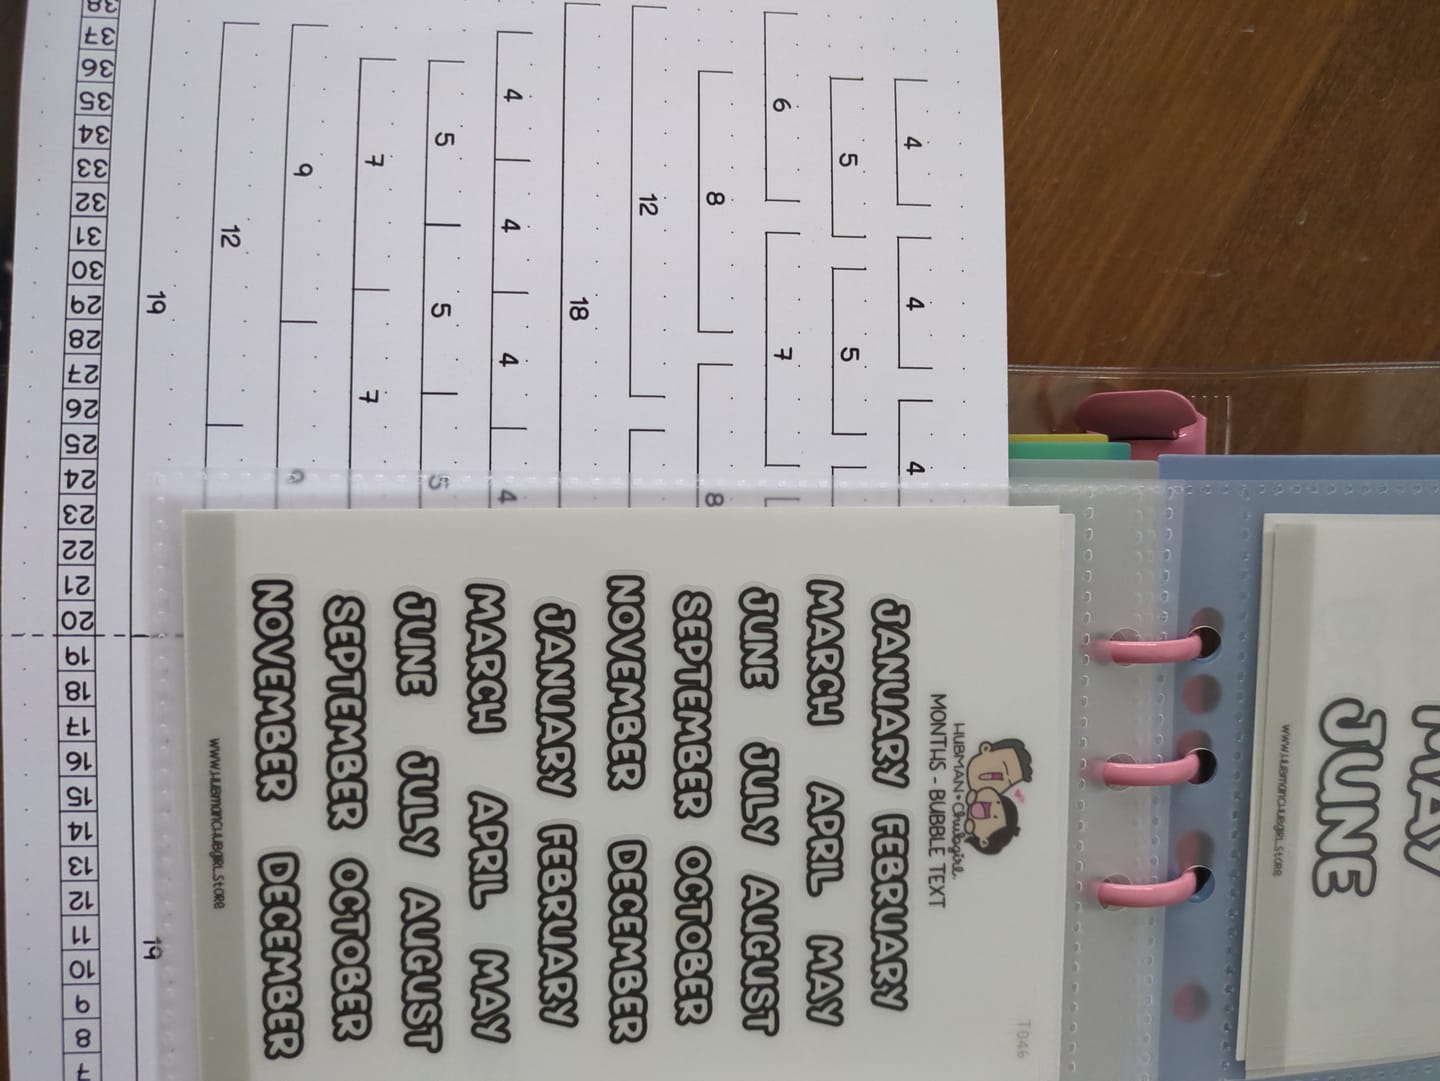 HUBMAN + Chubgirl.
MONTHS - BUBBLE TEXT
JANUARY FEBRUARY
MARCH APRIL MAY
JUNE JULY AUGUST
SEPTEMBER OCTOBER
NOVEMBER DECEMBER
JANUARY FEBRUARY
MARCH APRIL MAY
JUNE JULY AUGUST
SEPTEMBER OCTOBER
NOVEMBER DECEMBER
WWW.HUBMANCHUBGIRL.STORE
T046
MAY
JUNE
WWW.HUBMANCHUBGIRL.STORE
4 4 4
5 5
6 7
8 8
12
18
4 4 4 4
5 5 5
7 7
9 9
12
19 19
38 37 36 35 34 33 32 31 30 29 28 27 26 25 24 23 22 21 20 19 18 17 16 15 14 13 12 11 10 9 8 7